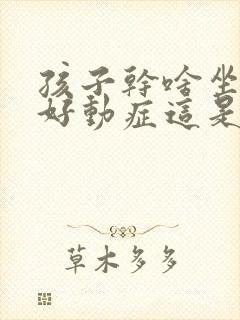 孩子幹啥坐
好動症這是
草木多多